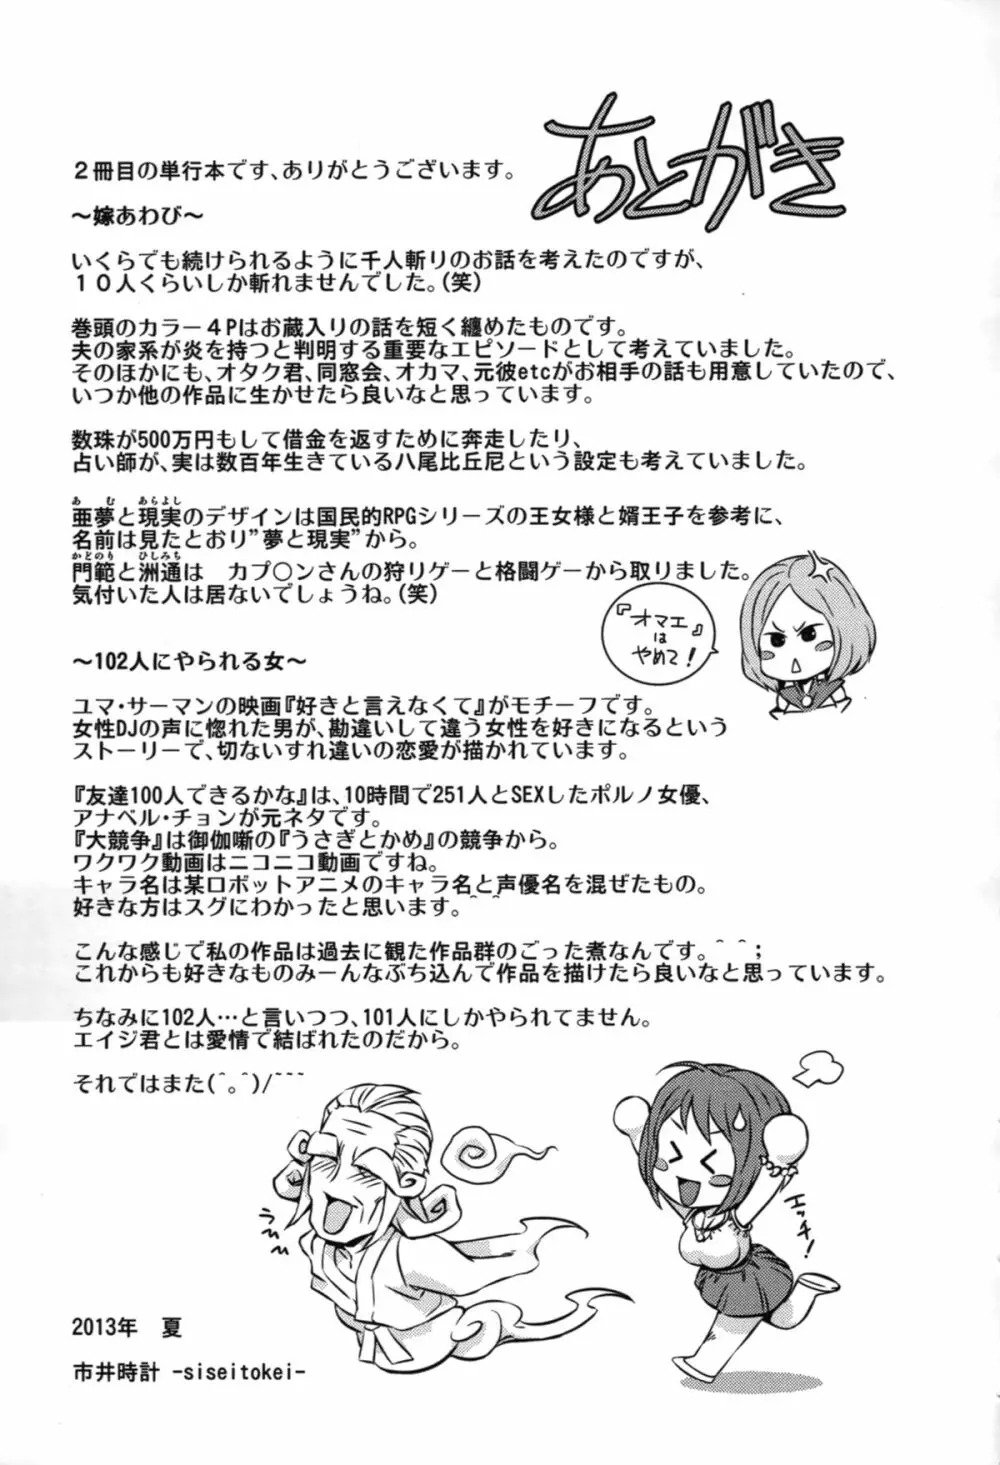 あとがき
２冊目の単行本です、ありがとうございます。
～嫁あわび～
いくらでも続けられるように千人斬りのお話を考えたのですが、
１０人くらいしか斬れませんでした。(笑)
巻頭のカラー４Pはお蔵入りの話を短く纏めたものです。
夫の家系が炎を持つと判明する重要なエピソードとして考えていました。
そのほかにも、オタク君、同窓会、オカマ、元彼etcがお相手の話も用意していたので、
いつか他の作品に生かせたら良いなと思っています。
数珠が500万円もして借金を返すために奔走したり、
占い師が、実は数百年生きている八尾比丘尼という設定も考えていました。
あ む あらよし
亜夢と現実のデザインは国民的RPGシリーズの王女様と婿王子を参考に、
名前は見たとおり”夢と現実”から。
かどのり ひしみち
門範と洲通は　カプ〇ンさんの狩りゲーと格闘ゲーから取りました。
気付いた人は居ないでしょうね。(笑)
『オマエ』
は
やめて！
～102人にやられる女～
ユマ・サーマンの映画『好きと言えなくて』がモチーフです。
女性DJの声に惚れた男が、勘違いして違う女性を好きになるという
ストーリーで、切ないすれ違いの恋愛が描かれています。
『友達100人できるかな』は、10時間で251人とSEXしたポルノ女優、
アナベル・チョンが元ネタです。
『大競争』は御伽噺の『うさぎとかめ』の競争から。
ワクワク動画はニコニコ動画ですね。
キャラ名は某ロボットアニメのキャラ名と声優名を混ぜたもの。
好きな方はスグにわかったと思います。＾ ＾
こんな感じで私の作品は過去に観た作品群のごった煮なんです。＾ ＾；
これからも好きなものみーんなぶち込んで作品を描けたら良いなと思っています。
ちなみに102人…と言いつつ、101人にしかやられてません。
エイジ君とは愛情で結ばれたのだから。
それではまた(＾。＾)/~~~
エッチ！
2013年　夏
市井時計 -siseitokei-